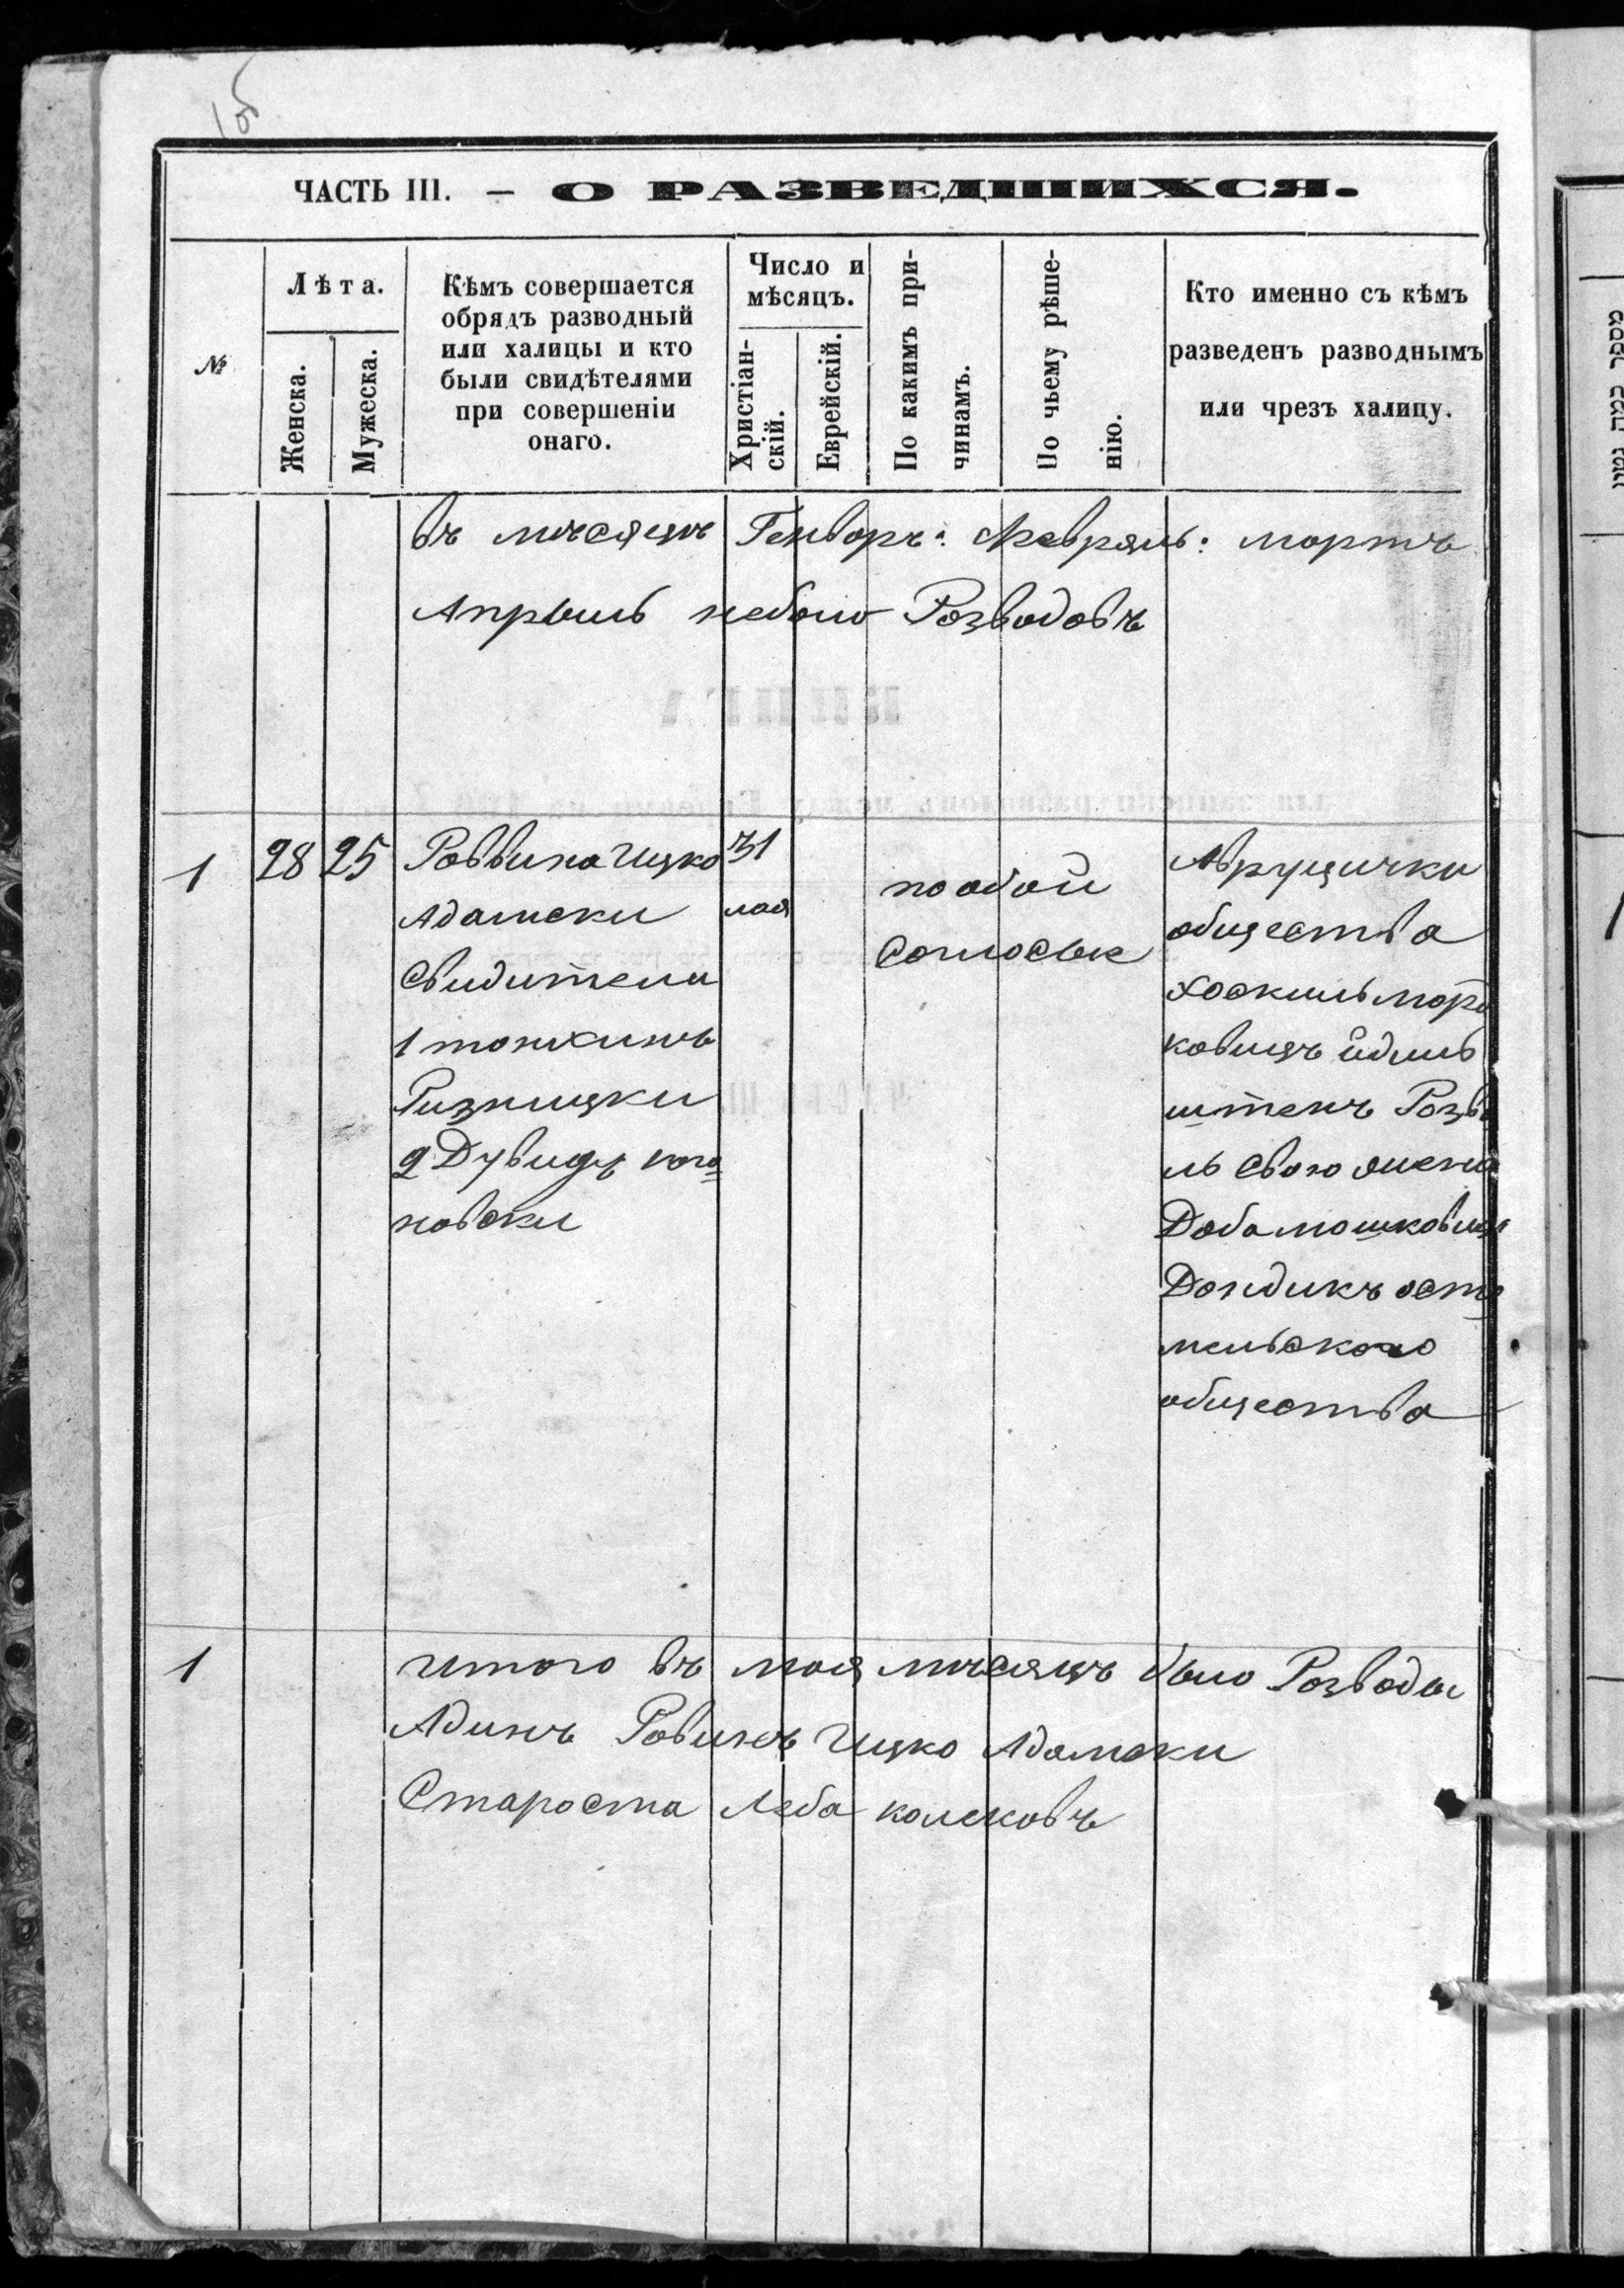 ЧАСТЬ III. — О РАЗВЕДШИХСЯ.
№
Лѣта.
Женска.
Мужеска.
Кѣмъ совершается
обрядъ разводный
или халицы и кто
были свидѣтелями
при совершеніи
онаго.
Число и
мѣсяцъ.
Христіан-
скій.
Еврейскій.
По какимъ при-
чинамъ.
По чьему рѣше-
нію.
Кто именно съ кѣмъ
разведенъ разводнымъ
или чрезъ халицу.
въ мѣсяцѣ Генворъ: Февраль: мортъ
Апрыль небыло Розводовъ
1 28 25
Роввина Ицко
Адамски
Свидители
1
Ризницки
2 Дувидъ кого
новски
31
мая
по обой
Соглосые
Аврущички
общества
Хоскиль Морд
ковицъ Идиль
штенъ Розве
ль свою жена
Доба мошковна
Дондикъ
мельского
общества
1
итого въ моя мѣсяцъ было Розводы
Адинъ Ровинъ Ицко Адамски
Староста Леба